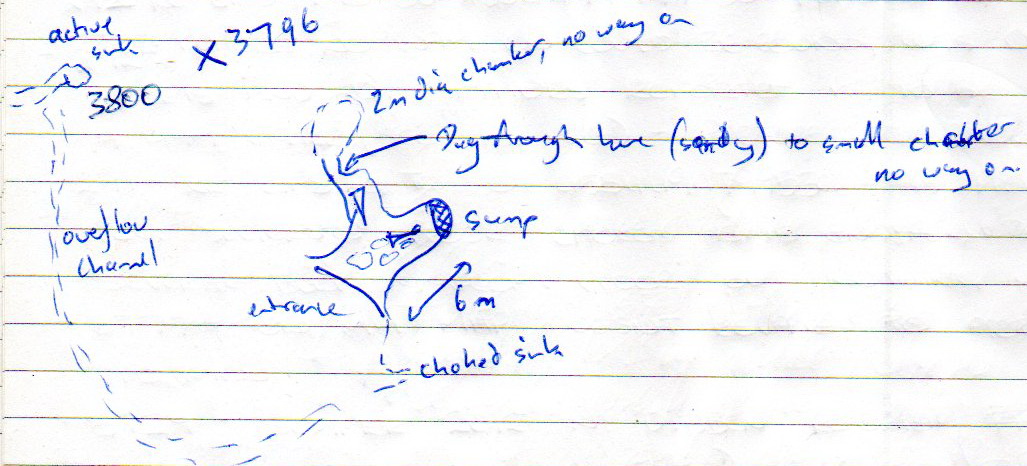 active
sink
X 3796
3800
2m dia chamber, no way on
Dug through here (sandy) to small chamber
no way on
sump
overflow
channel
entrance
6m
choked sink